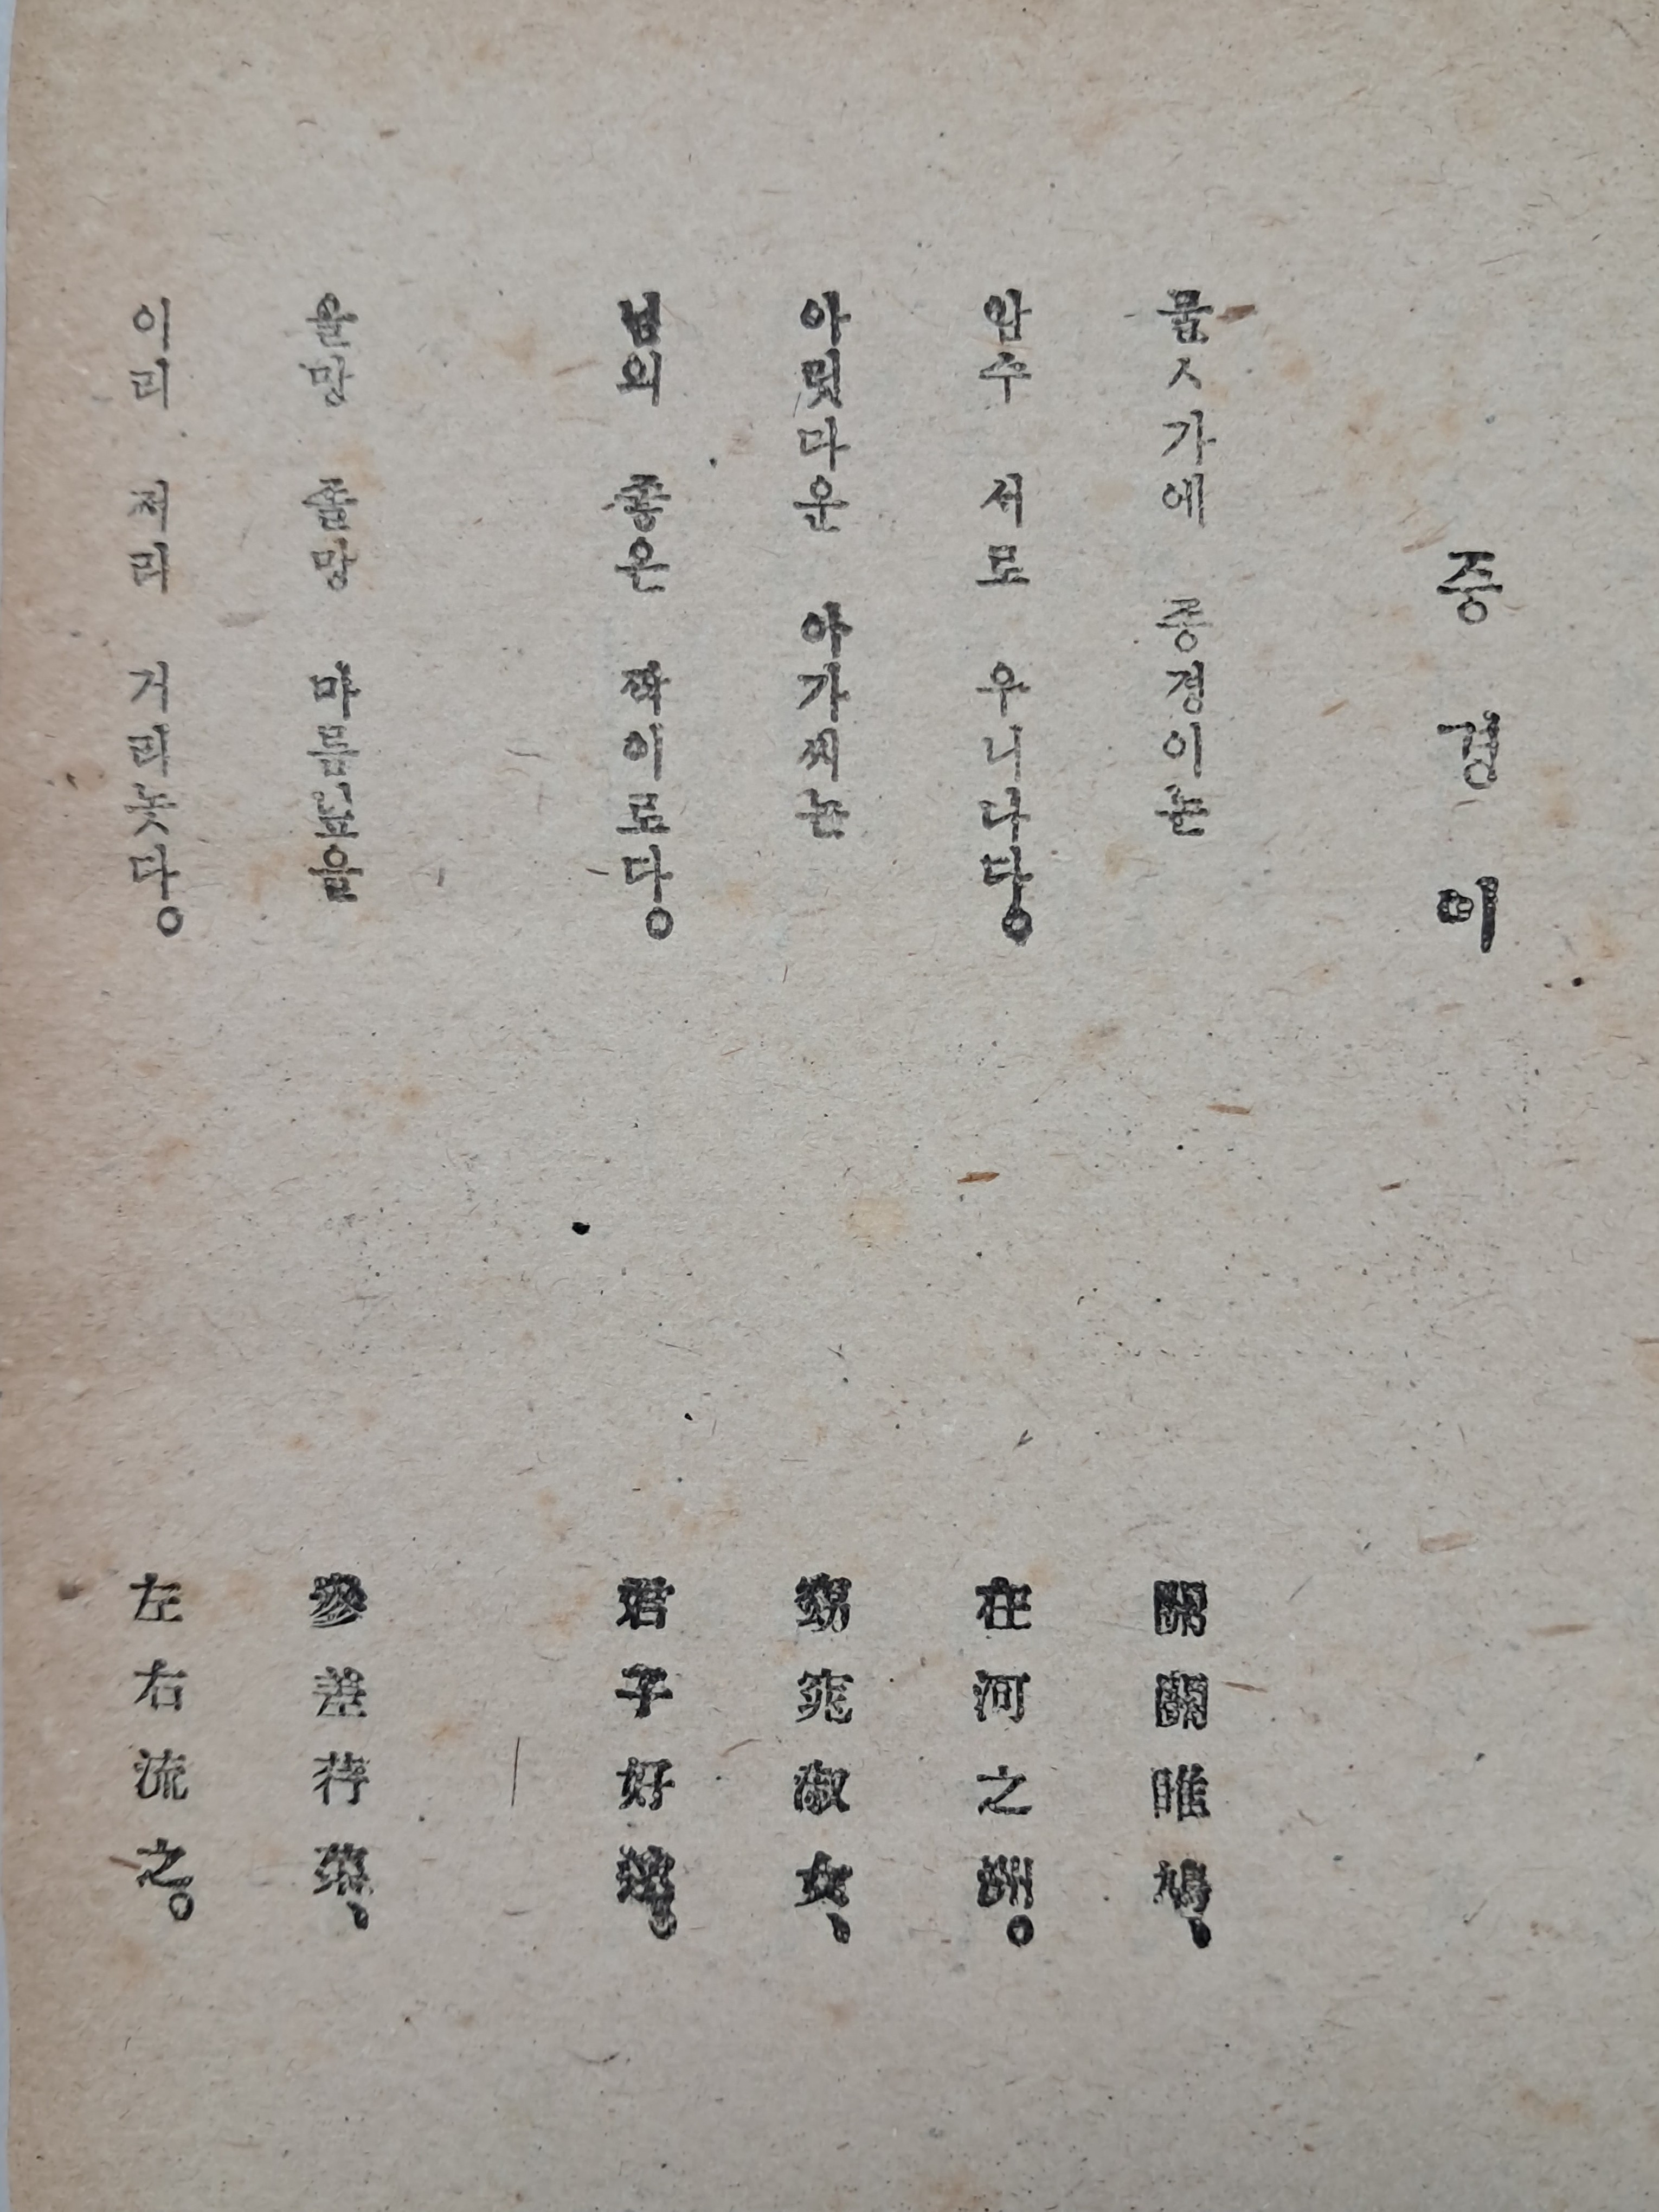 증경이
물ㅅ가에 증경이는
암수 서로 우니나다。
아릿다운 아가씨는
님의 좋은 짝이로다。
올망 졸망 마름닢을
이리 저리 거리놋다。
關關雎鳩、
在河之洲。
窈窕淑女、
君子好逑。
參差荇菜、
左右流之。